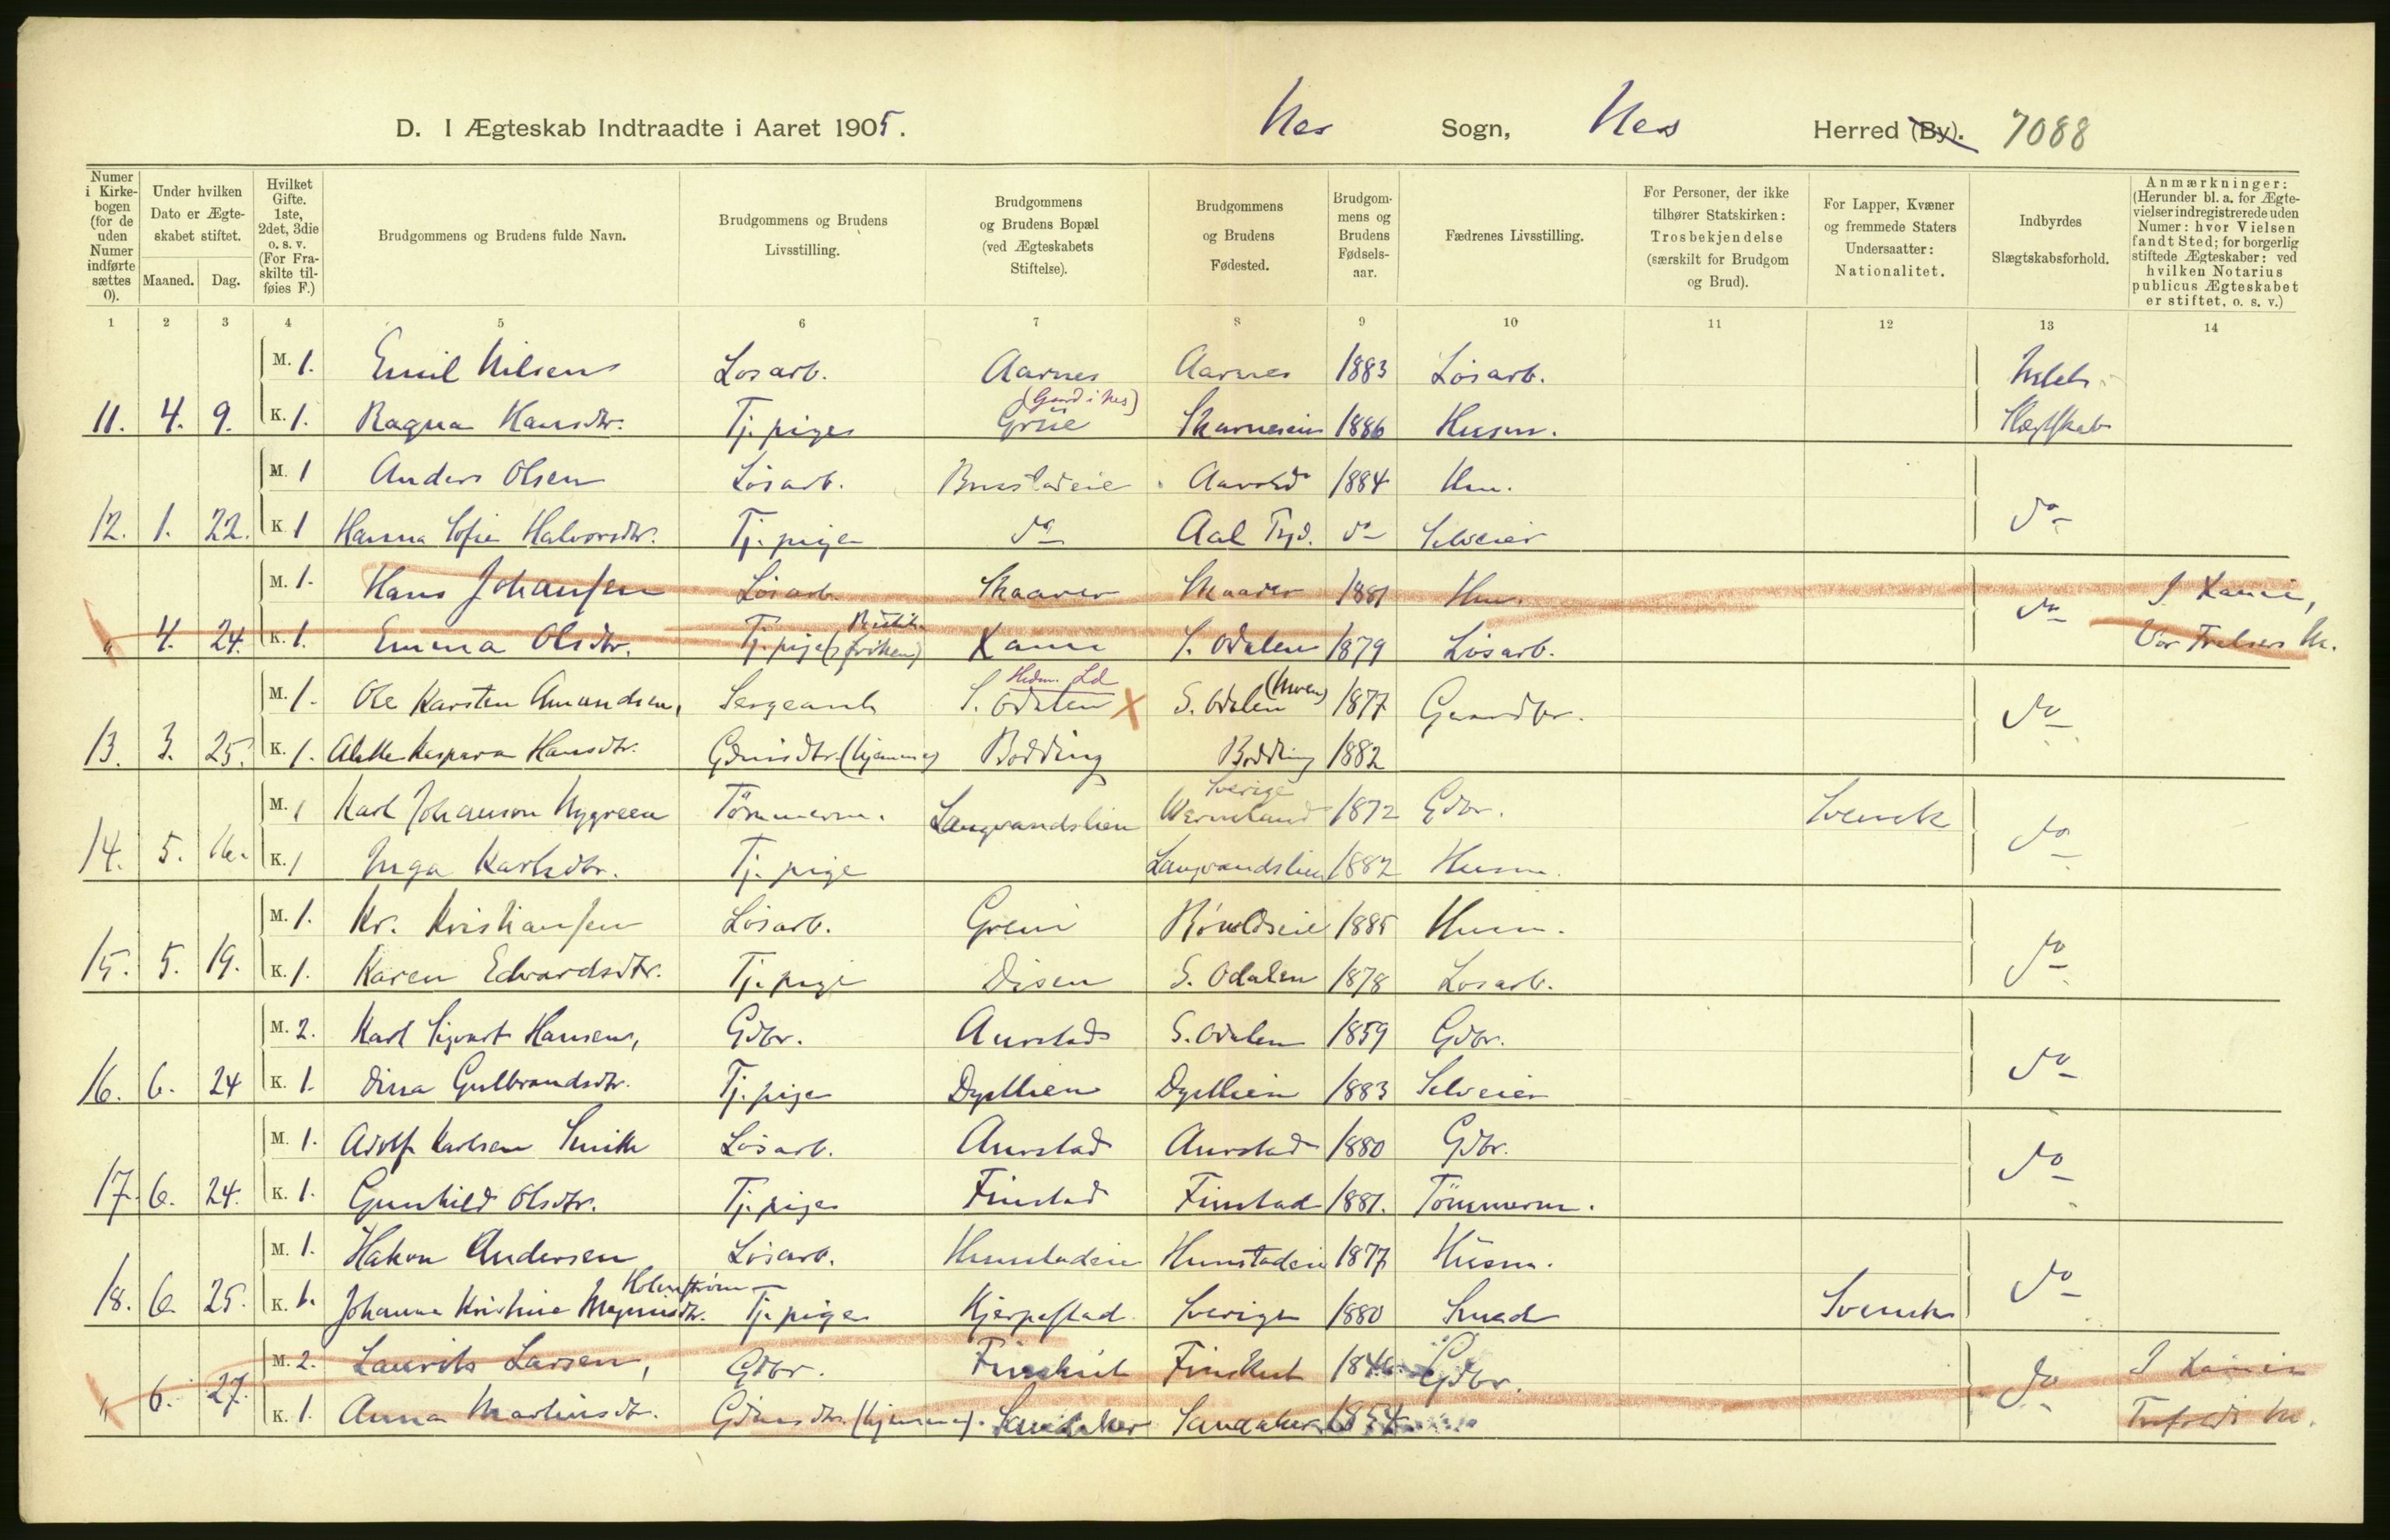 D. I Ægteskab Indtraadte i Aaret 1905. Nes Sogn, Nes Herred (By). 7088
Numer i Kirkebogen (for de uden Numer indførte sættes 0). Under hvilken Dato er Ægteskabet stiftet. Maaned. Dag. Hvilket Gifte. 1ste, 2det, 3die o. s. v. (For Fraskilte tilføies F.) Brudgommens og Brudens fulde Navn. Brudgommens og Brudens Livsstilling. Brudgommens og Brudens Bopæl (ved Ægteskabets Stiftelse). Brudgommens og Brudens Fødested. Brudgommens og Brudens Fødselsaar. Fædrenes Livsstilling. For Personer, der ikke tilhører Statskirken: Trosbekjendelse (særskilt for Brudgom og Brud). For Lapper, Kvæner og fremmede Staters Undersaatter: Nationalitet. Indbyrdes Slægtskabsforhold. Anmærkninger: (Herunder bl. a. for Ægtevielser indregistrerede uden Numer: hvor Vielsen fandt Sted; for borgerlig stiftede Ægteskaber: ved hvilken Notarius publicus Ægteskabet er stiftet, o. s. v.)
1 2 3 4 5 6 7 8 9 10 11 12 13 14
M. 1. Emil Nilsen Løsarb. Aarnes Aarnes 1883 Løsarb.
(Gaard i Nes)
11. 4. 9. K. 1. Ragna Hansdtr. Tj. pige Grüe 1886 Husm. Slægtskab
M. 1 Anders Olsen Løsarb. 1884 Hm.
12. 1. 22. K. 1 Hanna Sofie Halvorsdtr. Tj. pige do Aal do Selveier do
M. 1. Hans Johansen Løsarb. Skaarer Skaarer 1881 Hm.
" 4. 24. K. 1. Emma Olsdtr. Tj. pige S. Odalen 1879 Løsarb. do Vor Frelsers K.
Hedm.
M. 1. Ole Karsten Amundsen, Sergeant S. Odalen X S. Odalen 1877 Gaardbr.
13. 3. 25. K. 1. Kaspara Hansdtr. Gdmsdtr. (hjemme) Bodding Bodding 1882 do
Sverige
M. 1 Karl Johanson Nygreen Tømmerm. Langvandslien Wermland 1872 Gdbr. Svensk
14. 5. 16. K. 1 Inga Karlsdtr. Tj. pige Langvandslien 1882 Husm. do
M. 1. Kr. Kristiansen Løsarb. Greni 1885 Husm.
15. 5. 19. K. 1. Karen Edvardsdtr. Tj. pige Disen S. Odalen 1878 Løsarb. do
M. 2. Karl Sigvart Hansen, Gdbr. Aurstad S. Odalen 1859 Gdbr.
16. 6. 24 K. 1. Dina Gulbrandsdtr. Tj. pige Dystlien Dystlien 1883 Selveier do
M. 1. Adolf Karlsen Smith Løsarb. Aurstad Aurstad 1880 Gdbr.
17. 6. 24. K. 1. Gunhild Olsdtr. Tj. pige Finstad Finstad 1881. Tømmerm. do
M. 1. Hakon Andersen Løsarb. Hunstadeie Hunstadeie 1877 Husm.
Holmstrøm
18. 6. 25. K. 1. Johanna Kristine Magnusdtr. Tj. pige Kjerpestad Sverige 1880 Smed Svensk do
M. 2. Laurits Larsen, Gdbr. Finskut Finskut Gdbr.
" 6. 27. K. 1. Anna Martinsdtr. Gdmsdtr. (hjemme). Sandaker Sandaker 1854 do